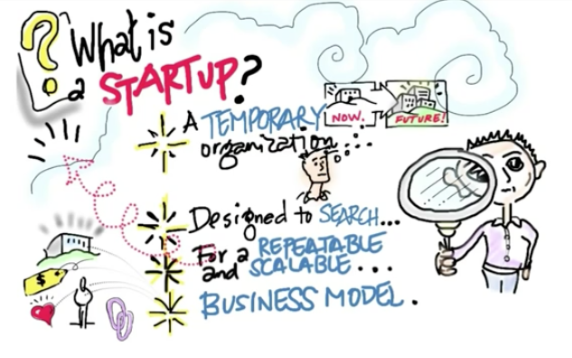 ?
What is
a STARTUP?
A TEMPORARY
organization...
NOW.
FUTURE!
Designed to SEARCH...
For a REPEATABLE
and SCALABLE...
BUSINESS MODEL.
$